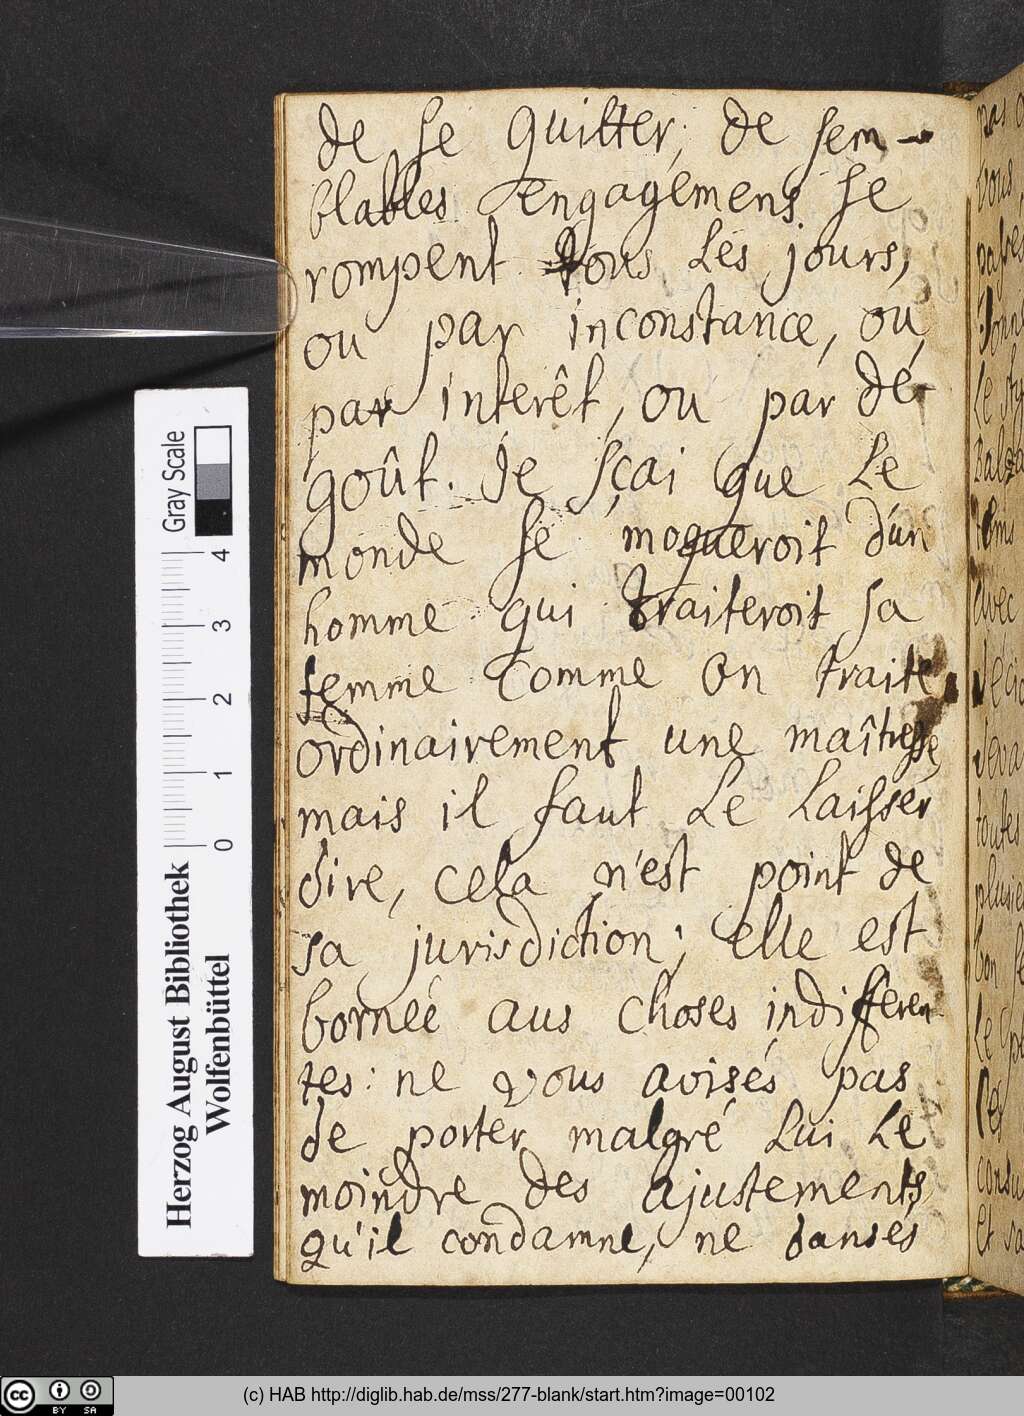 de se quitter; de sem-
blables engagemens se
rompent tous les jours,
ou par inconstance, ou
par interêt, ou par dé-
goût. Je sçai que le
monde se moqueroit d'un
homme qui traiteroit sa
femme comme on traite
ordinairement une maîtresse,
mais il faut le laisser
dire, cela n'est point de
sa jurisdiction; elle est
bornée aus choses indifferen-
tes: ne vous avisés pas
de porter malgré lui le
moindre des ajustements,
qu'il condamne, ne dansés
pas
vous
avec
toutes
Le
Et sa
Gray Scale
4
3
2
1
0
Herzog August Bibliothek
Wolfenbüttel
cc BY SA
(c) HAB http://diglib.hab.de/mss/277-blank/start.htm?image=00102